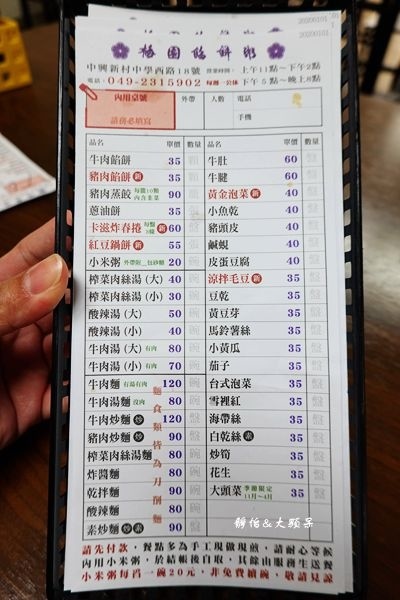 20200101
梅園餡餅粥
中興新村中學西路18號 營業時間：上午11點~下午2點
電話：049-2315902 每週一公休 下午5點~晚上8點
內用桌號 外帶 人數 電話
請務必填寫 手機
品名 單價 數量 品名 單價 數量
牛肉餡餅 35 牛肚 60
豬肉餡餅 新 35 牛腱 60
豬肉蒸餃 每籠10顆 內含韭菜 90 黃金泡菜 新 40
蔥油餅 35 小魚乾 40
卡滋炸春捲 每盤3條 新 60 豬頭皮 40
紅豆鍋餅 新 55 鹹蜆 40
小米粥 20 皮蛋豆腐 40
榨菜肉絲湯 (大) 40 涼拌毛豆 新 35
榨菜肉絲湯 (小) 30 豆乾 35
酸辣湯 (大) 50 黃豆芽 35
酸辣湯 (小) 40 馬鈴薯絲 35
牛肉湯 (大) 有肉 80 小黃瓜 35
牛肉湯 (小) 有肉 70 茄子 35
牛肉麵 有湯有肉 120 台式泡菜 35
牛肉湯麵 沒肉 80 雪裡紅 35
牛肉炒麵 炒 120 海帶絲 35
豬肉炒麵 炒 90 白乾絲 素 35
榨菜肉絲湯麵 80 炒筍 35
炸醬麵 80 花生 35
乾拌麵 80 大頭菜 季節限定 11月~4月 35
酸辣麵 90
素炒麵 炒 素 90
麵食類皆為刀削麵
靜怡&大顆呆
請先付款，餐點多為手工現做現煎，請耐心等候
內用小米粥，於結帳後自取，其餘由服務生送餐
小米粥每酌一碗20元，非免費續碗，敬請見諒